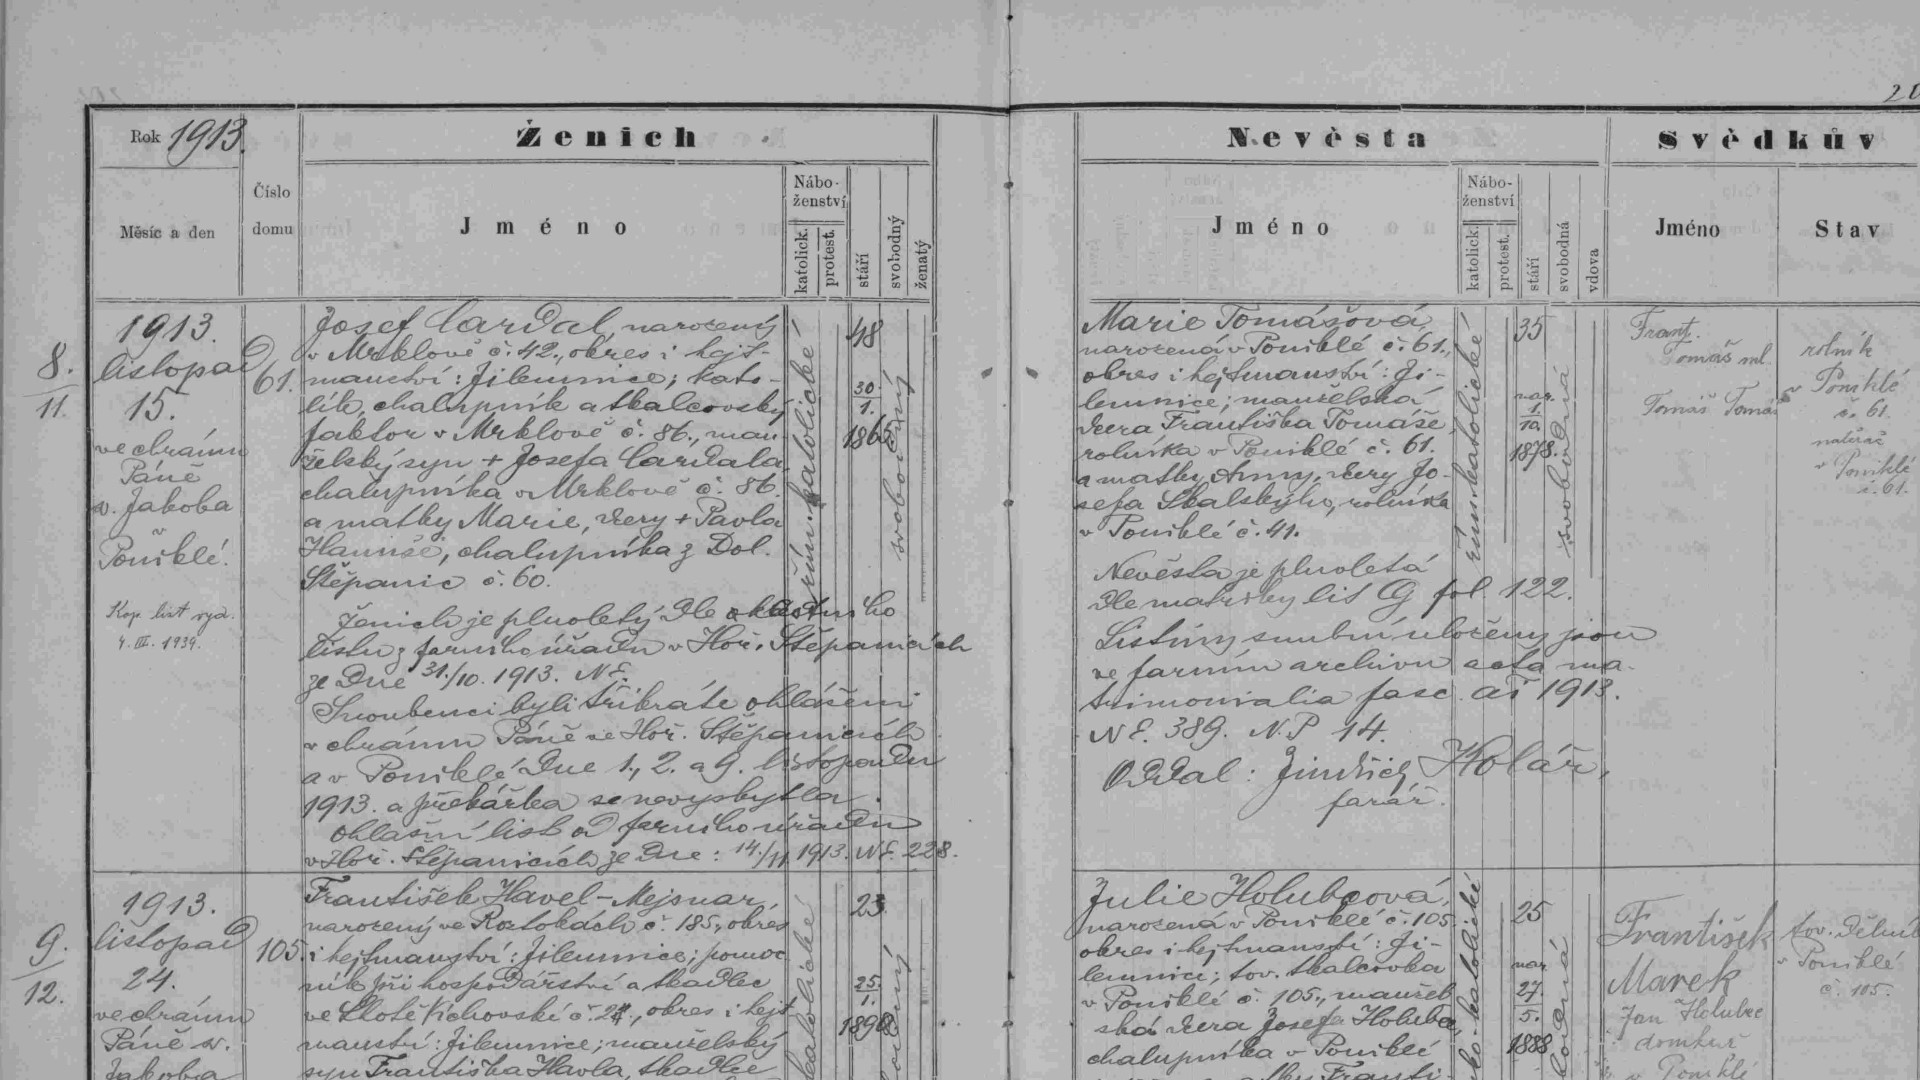 20
Rok 1913.
Ženich
Nevěsta
Svědkův
Měsíc a den
Číslo domu
Jméno
Náboženství
katolick.
protest.
stáří
svobodný
ženatý
Jméno
Náboženství
katolick.
protest.
stáří
svobodná
vdova
Jméno
Stav
8.
11.
1913.
listopad
15.
ve chrámu
Páně
sv. Jakoba
v
Poniklé.
Kop. list vyd.
4. III. 1939.
61.
Josef Cardal, narozený
v Mrklově č. 42., okres i hejt-
manství: Jilemnice; kato-
lík, chalupník a tkalcovský
faktor v Mrklově č. 86., man
želský syn + Josefa Cardala,
chalupníka v Mrklově č. 86.
a matky Marie, dcery + Pavla
Hanuše, chalupníka z Dol.
Štěpanic č. 60.
Ženich je plnoletý dle křestního
listu z farního úřadu v Hoř. Štěpanicích
ze dne 31./10. 1913. NE.
Snoubenci byli třikráte ohlášeni
v chrámu Páně ve Hoř. Štěpanicích
a v Poniklé dne 1., 2. a 9. listopadu
1913. a překážka se nevyskytla.
Ohlašní list od farního úřadu
v Hoř. Štěpanicích ze dne: 14./11. 1913. NE. 228.
římsko-katolické
48
30.
1.
1865
svobodný
Marie Tomášová,
narozená v Poniklé č. 61.,
okres i hejtmanství: Ji-
lemnice; manželská
dcera Františka Tomáše,
rolníka v Poniklé č. 61.
a matky Anny, dcery Jo-
sefa Skalského, rolníka
v Poniklé č. 41.
Nevěsta je plnoletá
dle matriky lit G fol. 122.
Listiny snubní uloženy jsou
ve farním archivu acta ma-
trimonialia fasc. ad 1913.
NE. 389. N.P 14.
Oddal: Jindřich Kolář,
farář.
římsko-katolické
35
nar.
1.
10.
1878.
svobodná
Frant.
Tomáš ml.
Tomáš Tomáš
rolník
v Poniklé
č. 61.
natěrač
v Poniklé
č. 61.
9.
12.
1913.
listopad
24.
ve chrámu
Páně sv.
Jakoba
105.
František Havel-Mejsnar,
narozený ve Roztokách č. 185., okres
i hejtmanství: Jilemnice; pomoc
ník při hospodářství a tkadlec
ve Lhotě Víchovské č. 24., okres i hejt
manství: Jilemnice; manželský
syn Františka Havla, tkadlce
katolické
23
25.
1.
1890
svobodný
Julie Holubcová,
narozená v Poniklé č. 105.
okres i hejtmanství: Ji-
lemnice; tov. tkalcovka
v Poniklé č. 105., manžel
ská dcera Josefa Holubce,
chalupníka v Poniklé
římsko-katolické
25
nar.
27.
5.
1888
svobodná
František
Marek
Jan Holubec
domkář
v Poniklé
tov. dělník
v Poniklé
č. 105.